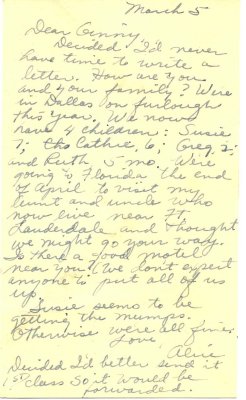 March 5
Dear Ginny,
Decided I'd never
have time to write a
letter. How are you
and your family? We're
in Dallas on furlough
this year. We now
have 4 children: Susie
7; Cathie, 6; Greg, 2;
and Ruth 5 mo. We're
going to Florida the end
of April to visit my
aunt and uncle who
now live near Ft.
Lauderdale and thought
we might go your way.
Is there a good motel
near you? (We don't expect
anyone to put all of us
up.
Susie seems to be
getting the mumps.
Otherwise we're all fine.
Love,
Alice
Decided I'd better send it
1st class so it would be
forwarded.